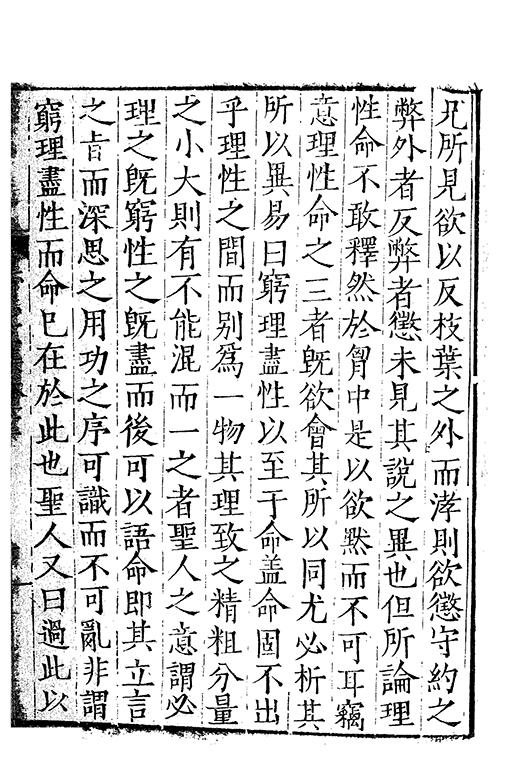 凡所見欲以反枝葉之外而涍則欲懲守約之
弊外者反弊者懲未見其說之異也但所論理
性命不敢釋然於胷中是以欲黙而不可耳竊
意理性命之三者旣欲會其所以同尤必析其
所以異易曰窮理盡性以至于命盖命固不出
乎理性之間而别爲一物其理致之精粗分量
之小大則有不能混而一之者聖人之意謂必
理之旣窮性之旣盡而後可以語命即其立言
之旨而深思之用功之序可識而不可亂非謂
窮理盡性而命已在於此也聖人又曰過此以